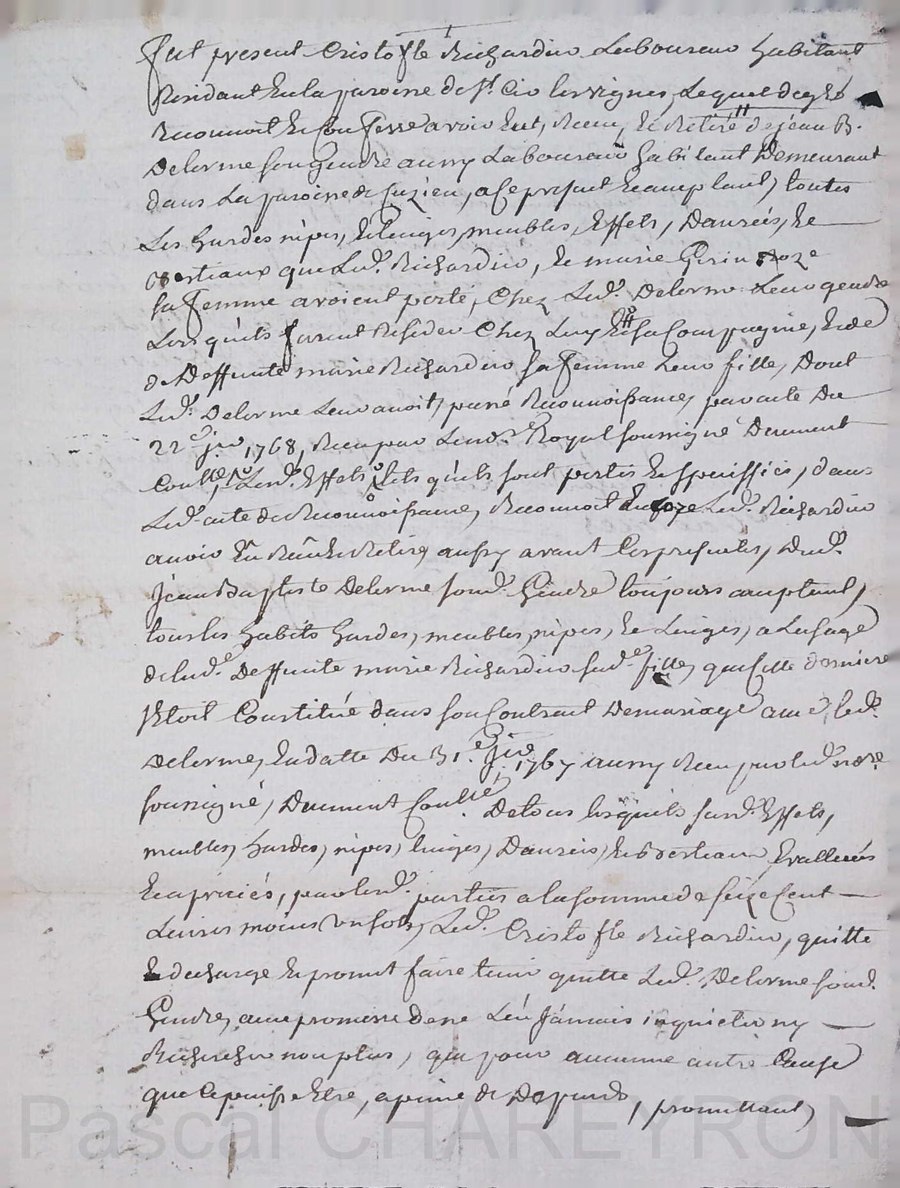 fut present Cristofle Richardier Laboureur habitant
Residant En la paroisse de St. Cir les vignes, Lequel de gré
Reconnoit Et Confesse avoir Eut, Receu, Et Retiré de jean B.
Delorme son gendre aussy Laboureur habitant Demeurant
dans La paroisse de Cuzieu, a Ce present Et acceptant, toutes
Les hardes nipes, Et linges, meubles, Effets, Danrées, Et
Bestiaux que Led. Richardier, Et marie Girin
sa femme avoient porté, Chez Led. Delorme Leur gendre
Lorsqu'ils furent Resider Chez Luy Et sa Compagnie, Et de
deffunte marie Richardier sa femme Leur fille, Dont
Led. Delorme Leur avoit, passé Reconnoissance, par acte du
22e jer 1768, Receu par Le no.re Royal soussigné Deument
Collé, Lesd. Effets, tels qu'ils sont portés Et Speciffiés, dans
Led. acte de Reconnoissance, Reconnoit Encore Led. Richardier
avoir Eu Receu Et Retiré, aussy avant Ces presentes, Dud.
Jean Baptiste Delorme sond. Gendre toujours acceptant,
tous les habits hardes, meubles, nipes, Et Linges, a Lusage
de lad.e Deffunte marie Richardier sad.e fille, que Cette derniere
S'Etoit Constitué dans son Contract De mariage avec, led.
delorme, En datte Du 31.e 1767 aussy Receu par led. no.re
soussigné, Deument Collé. De tous lesquels susd. Effets,
meubles, hardes, nipes, linges, Danrées, Et Bestiaux, Evallués
Et apreciés, par lesd. parties a la somme de seize Cent
Livres moins un sols, Led. Cristofle Richardier, quitte
Et decharge Et promet faire tenir quitte Led. Delorme sond.
Gendre, avec promesse De ne L'en Jamais inquieter ny
Rechercher non plus, que pour aucunne autre Cause
que Ce puisse Etre, a peine de Depends, promettant,
Pascal CHAREYRON